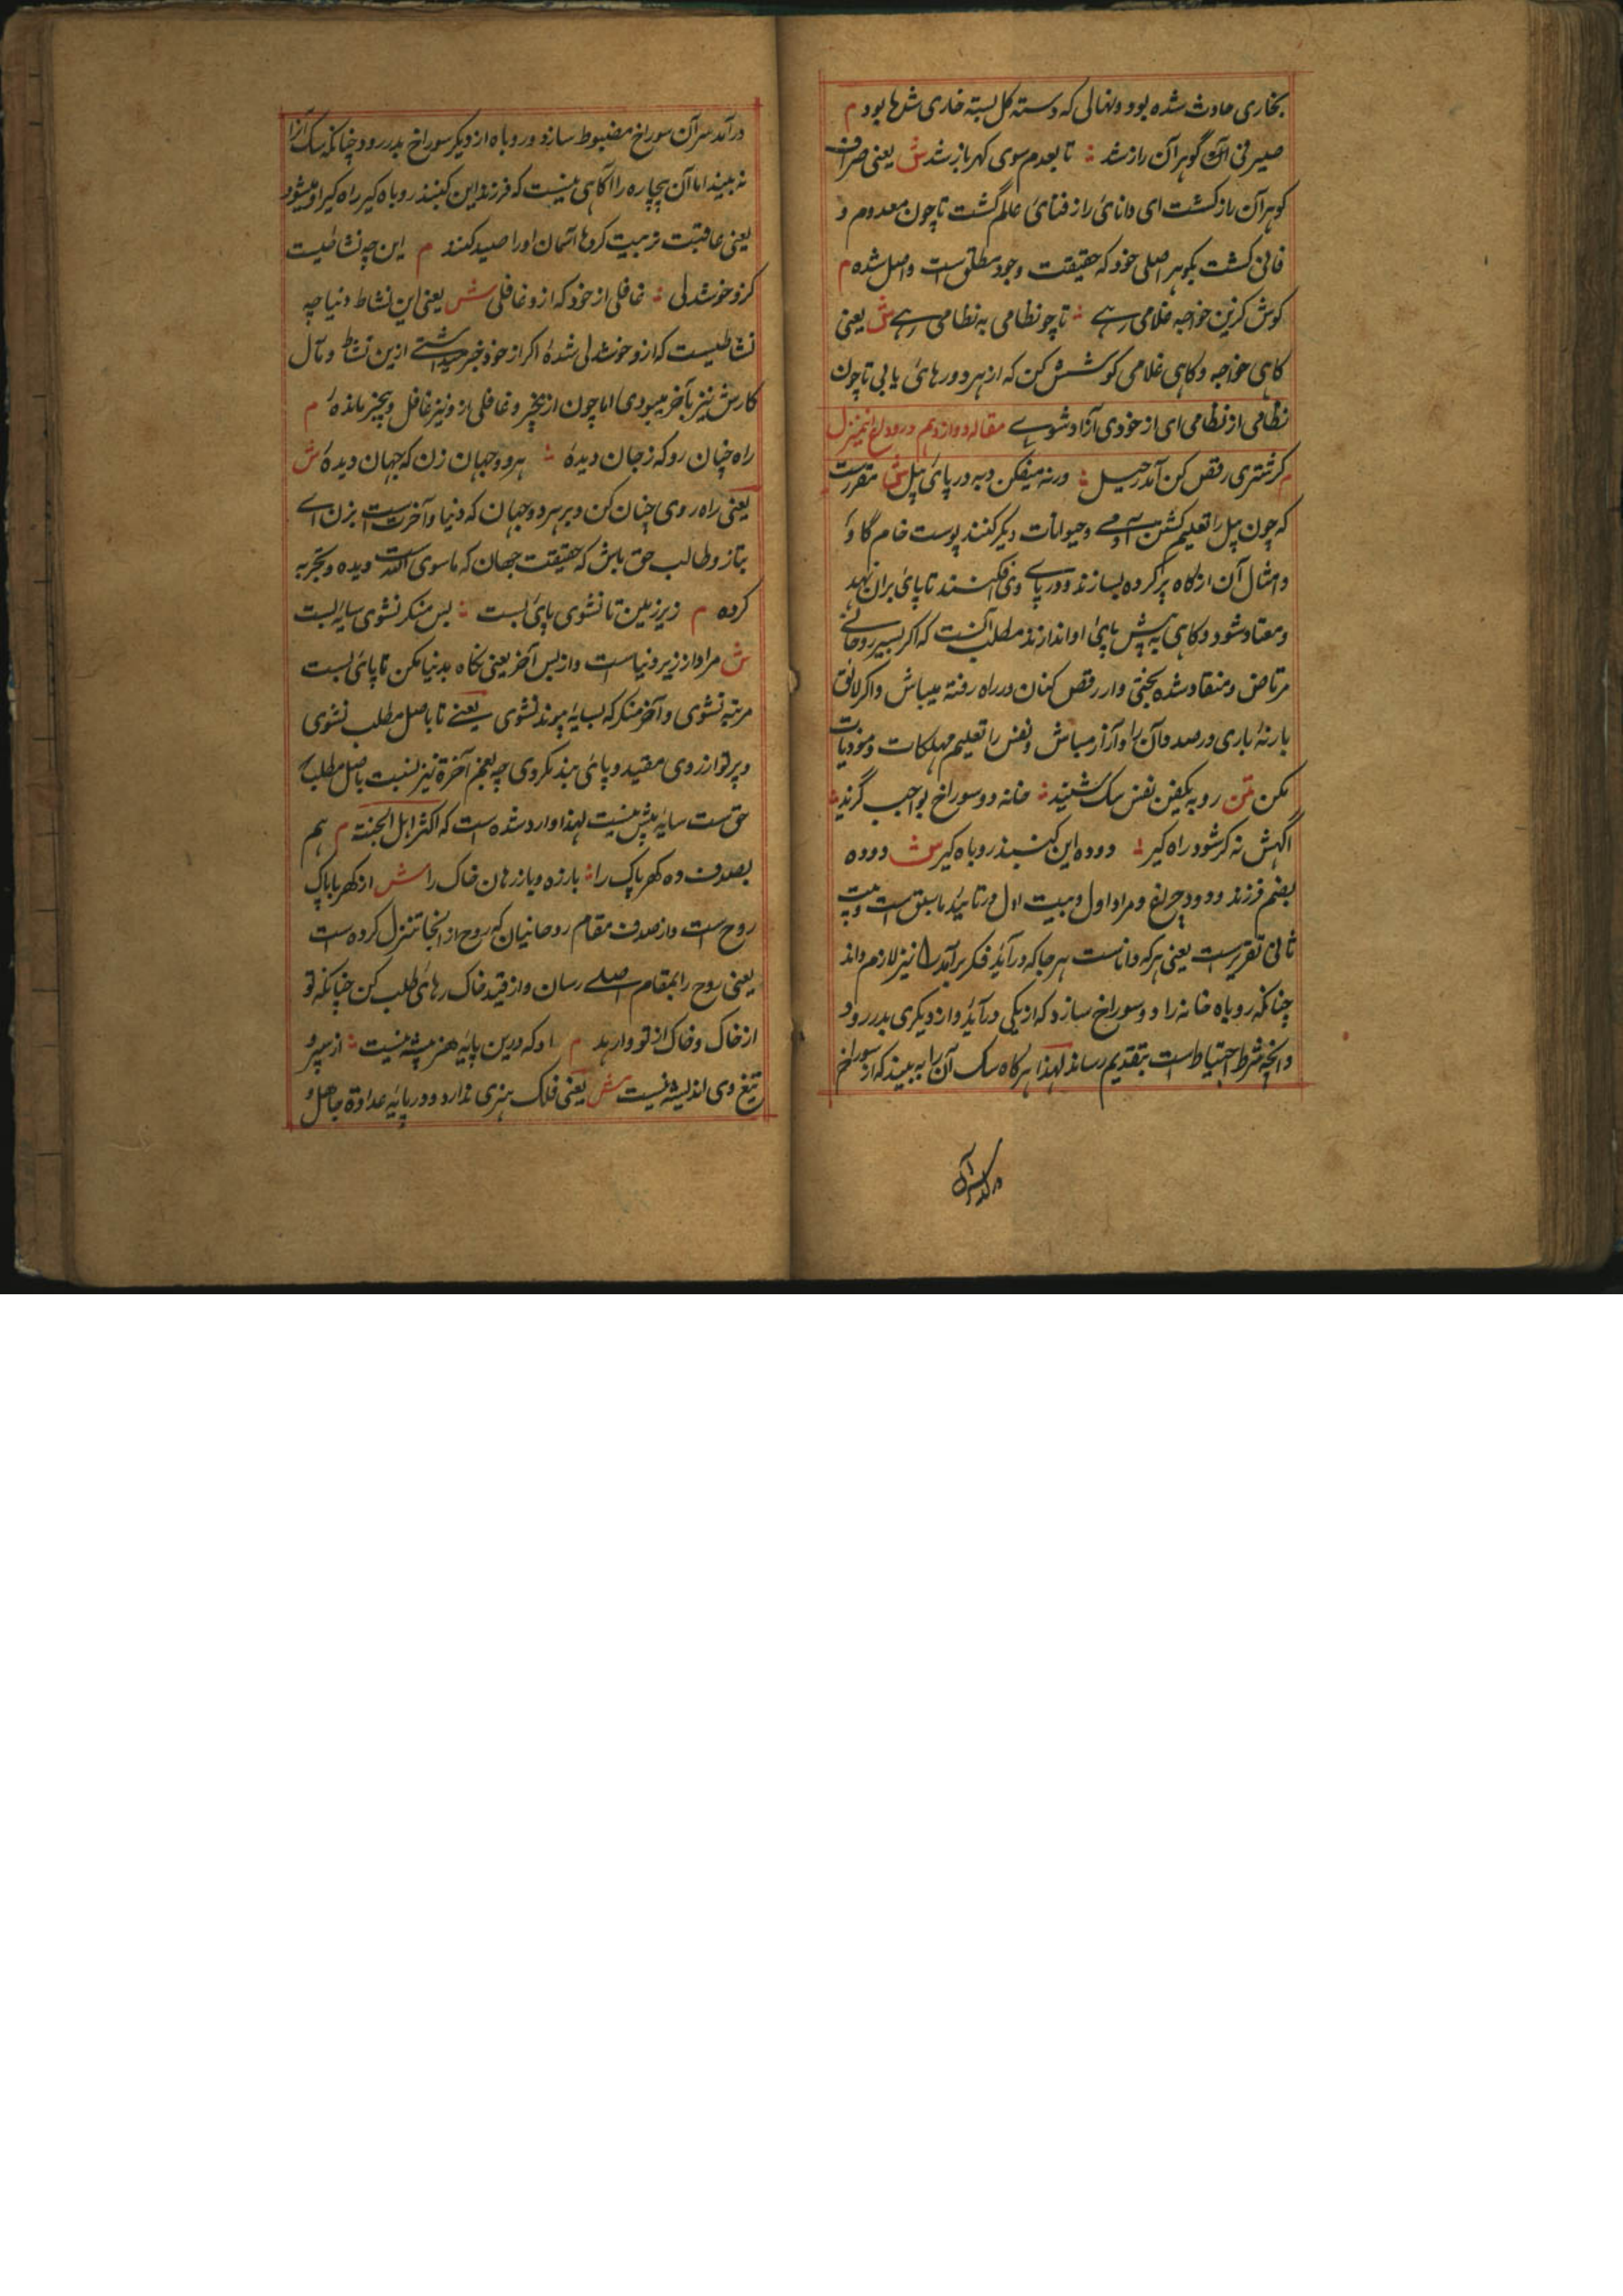 بخاری حادث شده بود و نهالی که دسته گل بسته خاری شدها بود م
صیرفی آنک گوهر آن راز شد ⁖ تا بعدم سوی گهر باز شد ش یعنی صراف
گوهر آن راز گشت ای دانای راز فنای علم گشت تا چون معدوم و
فانی گشت بگوهر اصلی خود که حقیقت وجود مطلق است واصل شده م
کوش کزین خواجه غلامی رهے ⁖ تا چو نظامی به نظامی رهے ش یعنی
گاهی خواجه و گاهی غلامی کوشش کن که از هر دو رهائی یابی تا چون
نظامی از نظامی ای از خودی آزاد شوے مقاله دوازدهم در وداع این منزل
م گر شتری رقص کن آمد رحیل ⁖ ورنه میفکن دبه در پائ پیل ش مقررست
که چون پیل را تعلیم کشتن آدمے و حیوانات دیگر کنند پوست خام گاو
و امثال آن از کاه پر کرده بسازند و در پاے وی فکنند تا پائ بران نهد
و معتاد شود و گاهی به پیش پائ او اندازند مطلب آنست که اگر بسیر روحانی
مرتاض و منقاد شده بختی وار رقص کنان در راه رفته میباش و اگر لائق
بار نۀ باری در صدد آن را و آزار مباش و نفس را تعلیم مهلکات و موذیات
مکن متن روبه یکفن نفس سگ شنید ⁖ خانه دو سوراخ بواجب گزید
اگهش نه که شود راه گیر ⁖ دوده این گنبد روباه گیر ش دوده
بضم فرزند و دود چراغ و مراد اول و بیت اول در تائید ماسبق است و بیت
ثانی تقریرست یعنی هر که داناست هر جا که در آید فکر بر آمد را نیز لازم داند
چنانکه روباه خانه را دو سوراخ سازد که از یکی در آید و از دیگری بدر رود
و آنچه شرط احتیاط است بتقدیم رساند لهذا هر گاه سگ آن را به بیند که از سوراخ
در آمد سر آن
در آمد سر آن سوراخ مضبوط سازد و روباه از دیگر سوراخ بدر رود چنانکه سگ آنرا
نه بیند اما آن بیچاره را آگاهی نیست که فرزند این گنبد روباه گیر راه گیر او میشود
یعنی عاقبت تربیت کردها آسمان او را صید کنند م این چه نشاطیست
کزو خوشدلی ⁖ غافلی از خود که ازو غافلی ش یعنی این نشاط دنیا چه
نشاطیست که ازو خوشدلی شدۀ اگر از خود خبر میداشتے ازین نشاط و مآل
کارش نیز باخبر میبودی اما چون از بیخبر و غافلی ازو نیز غافل و بیخبر ماندۀ م
راه چنان رو که ز جان دیدۀ ⁖ بر دو جهان زن که جهان دیدۀ ش
یعنی راه روی چنان کن و بر هر دو جهان که دنیا و آخرت است بزن اے
بتاز و طالب حق باش که حقیقت جهان که ماسوی الله است دیده و تجربه
کرده م زیر زمین تا نشوی پائ بست ⁖ پس منگر نشوی سایه بست
ش مراد از زیر دنیاست و از پس آخر یعنی نگاه بدنیا مکن تا پائ بست
مرتبه نشوی و آخر منگر که بسایه پیوند نشوی یعنے تا باصل مطلب نشوی
و پرتو از روی مقید و پائ بند نگردی چه نعم آخرة نیز نسبت باصل مطلب که
حق ست سایه بیش نیست لهذا وارد شده است که اکثر اهل الجنة م هم
بصدف ده گهر پاک را ⁖ باز ده و باز رهان خاک را ش از گهر پاک
روح است و از صدف مقام روحانیان که روح از آنجا تنزل کرده است
یعنی روح را بمقام اصلے رسان و از قید خاک رهائ طلب کن چنانکه تو
از خاک و خاک از تو وا رهد م او که درین پایه هنر پیشه نیست ⁖ از سپر و
تیغ وی اندیشه نیست ش یعنی فلک هنری ندارد و در پایه عداوة جاهل و